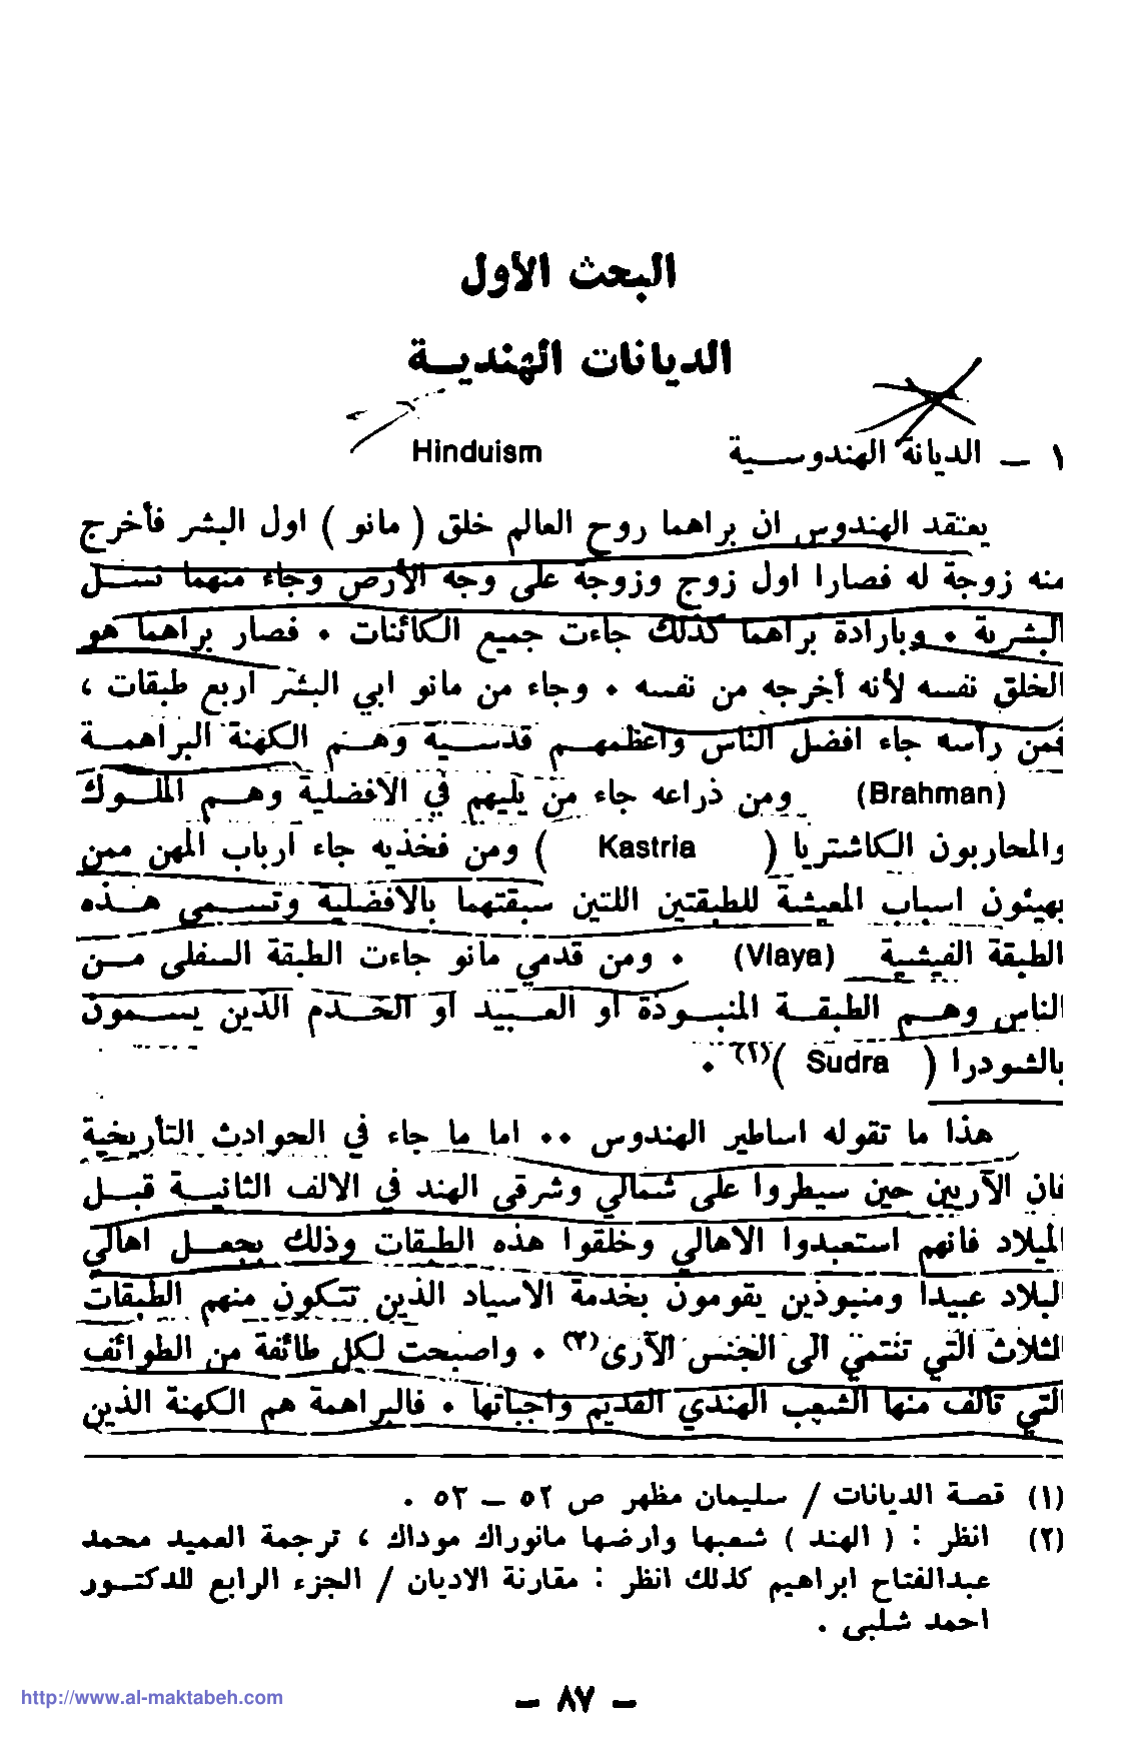 البحث الأول
الديانات الهنديــة
١ – الديانة الهندوســية Hinduism
يعتقد الهندوس ان براهما روح العالم خلق ( مانو ) اول البشر فأخرج
منه زوجة له فصارا اول زوج وزوجة على وجه الأرض وجاء منهما نســل
البشرية . وبارادة براهما كذلك جاءت جميع الكائنات . فصار براهما هو
الخلق نفسه لأنه أخرجه من نفسه . وجاء من مانو ابي البشر اربع طبقات ،
فمن رأسه جاء افضل الناس واعظمهــم قدســية وهــم الكهنة البراهمــة
(Brahman) ومن ذراعه جاء من يليهم في الافضلية وهــم الملــوك
والمحاربون الكاشتريا ( Kastria ) ومن فخذيه جاء ارباب المهن ممن
يهيئون اسباب المعيشة للطبقتين اللتين سبقتهما بالافضلية وتســمى هــذه
الطبقة الفيشية (Viaya) . ومن قدمي مانو جاءت الطبقة السفلى مــن
الناس وهــم الطبقــة المنبــوذة أو العبيد او الخــدم الذين يســمون
بالشودرا ( Sudra )(١) .
هذا ما تقوله اساطير الهندوس .. اما ما جاء في الحوادث التأريخية
فان الآريين حين سيطروا على شمالي وشرقي الهند في الالف الثانيــة قبــل
الميلاد فانهم استعبدوا الاهالي وخلقوا هذه الطبقات وذلك بجعــل اهالي
البلاد عبيدا ومنبوذين يقومون بخدمة الاسياد الذين تتكون منهم الطبقات
الثلاث التي تنتمي الى الجنس الآرى(٢) . واصبحت لكل طائفة من الطوائف
التي تألف منها الشعب الهندي القديم واجباتها . فالبراهمة هم الكهنة الذين
(١) قصة الديانات / سليمان مظهر ص ٥٢ – ٥٣ .
(٢) انظر : ( الهند ) شعبها وارضها مانوراك موداك ، ترجمة العميد محمد
عبدالفتاح ابراهيم كذلك انظر : مقارنة الاديان / الجزء الرابع للدكتــور
احمد شلبى .
http://www.al-maktabeh.com
– ٨٧ –